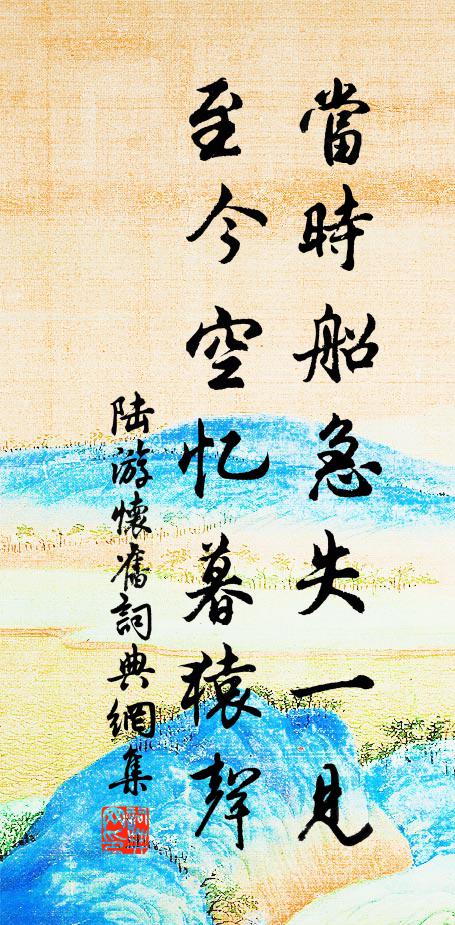 當時船急失一見
至今空忆暮猿聲
陆游懷舊詞典網集